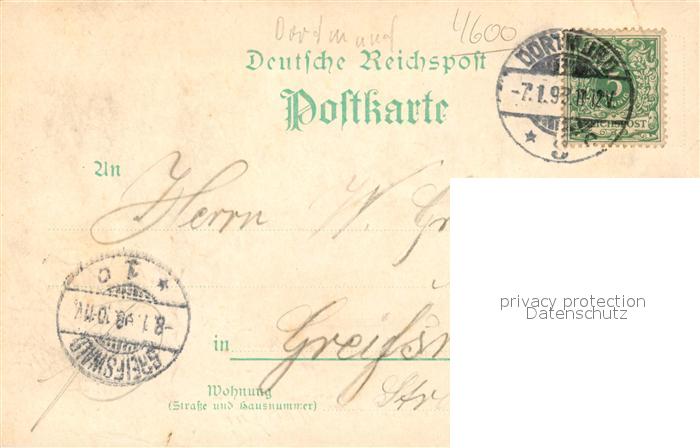 Dortmund 4600
Deutsche Reichspost
Postkarte
DORTMUND
-7.1.98. 11-12V.
REICHSPOST
An
Herrn W. Gr
privacy protection
Datenschutz
1 c
-8.1.98. 10-11V.
GREIFSWALD
in Greifsw
Wohnung Str
(Straße und Hausnummer)